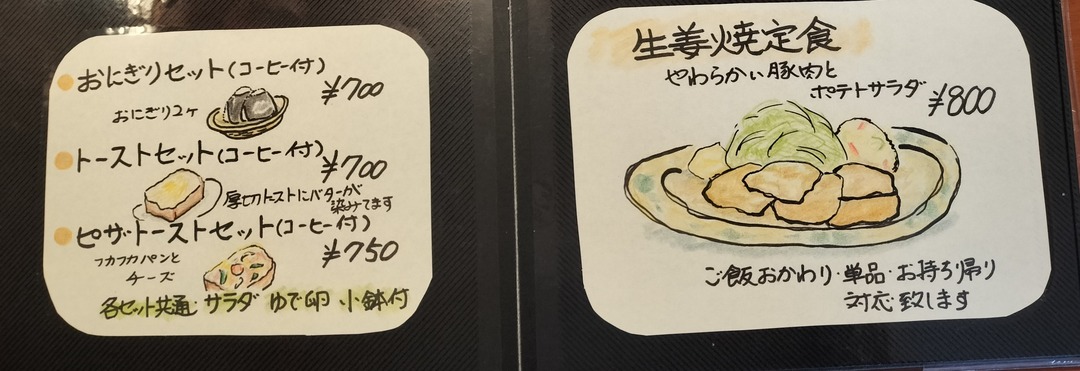 おにぎりセット(コーヒー付)
¥700
おにぎり2ヶ
トーストセット(コーヒー付)
¥700
厚切トーストにバターが
染みてます
ピザ・トーストセット(コーヒー付)
¥750
フカフカパンと
チーズ
各セット共通・サラダ ゆで卵 小鉢付
生姜焼定食
やわらかい豚肉と
ポテトサラダ
¥800
ご飯おかわり・単品・お持ち帰り
対応致します